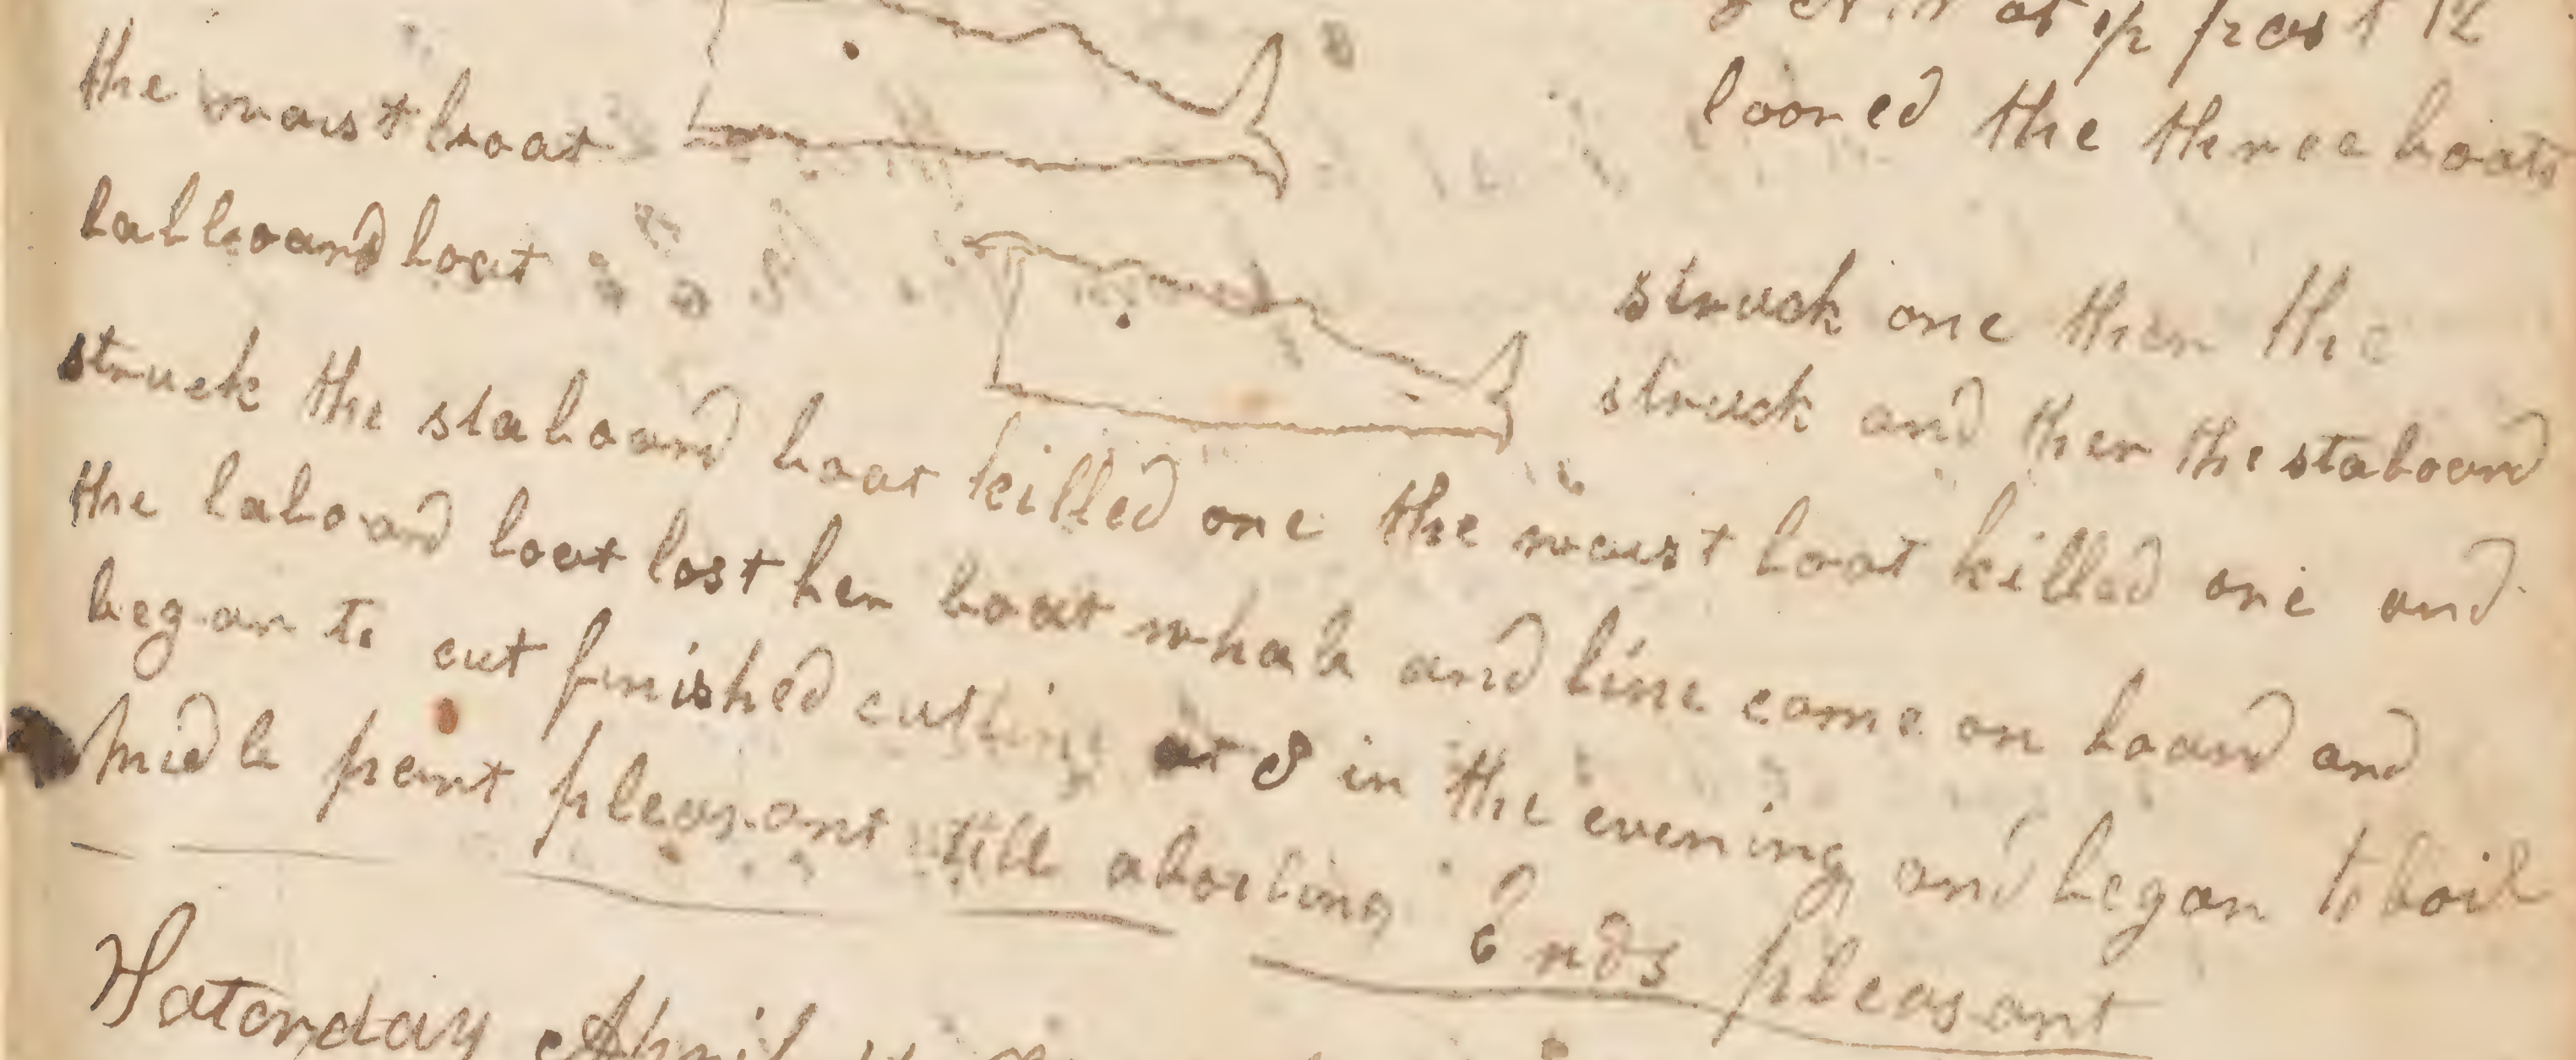 at 1/2 past 12
loored the thenee boats
the waist boat
struck one then the
labboard boat
struck and then the staboard
struck the staboard boat killed one the waist boat killed one and
the laboard boat lost her boat whale and line came on board and
began to cut finished cutting at 8 in the evening and began to boil
Midle part pleasant still aboiling Ends pleasant
Saterday April